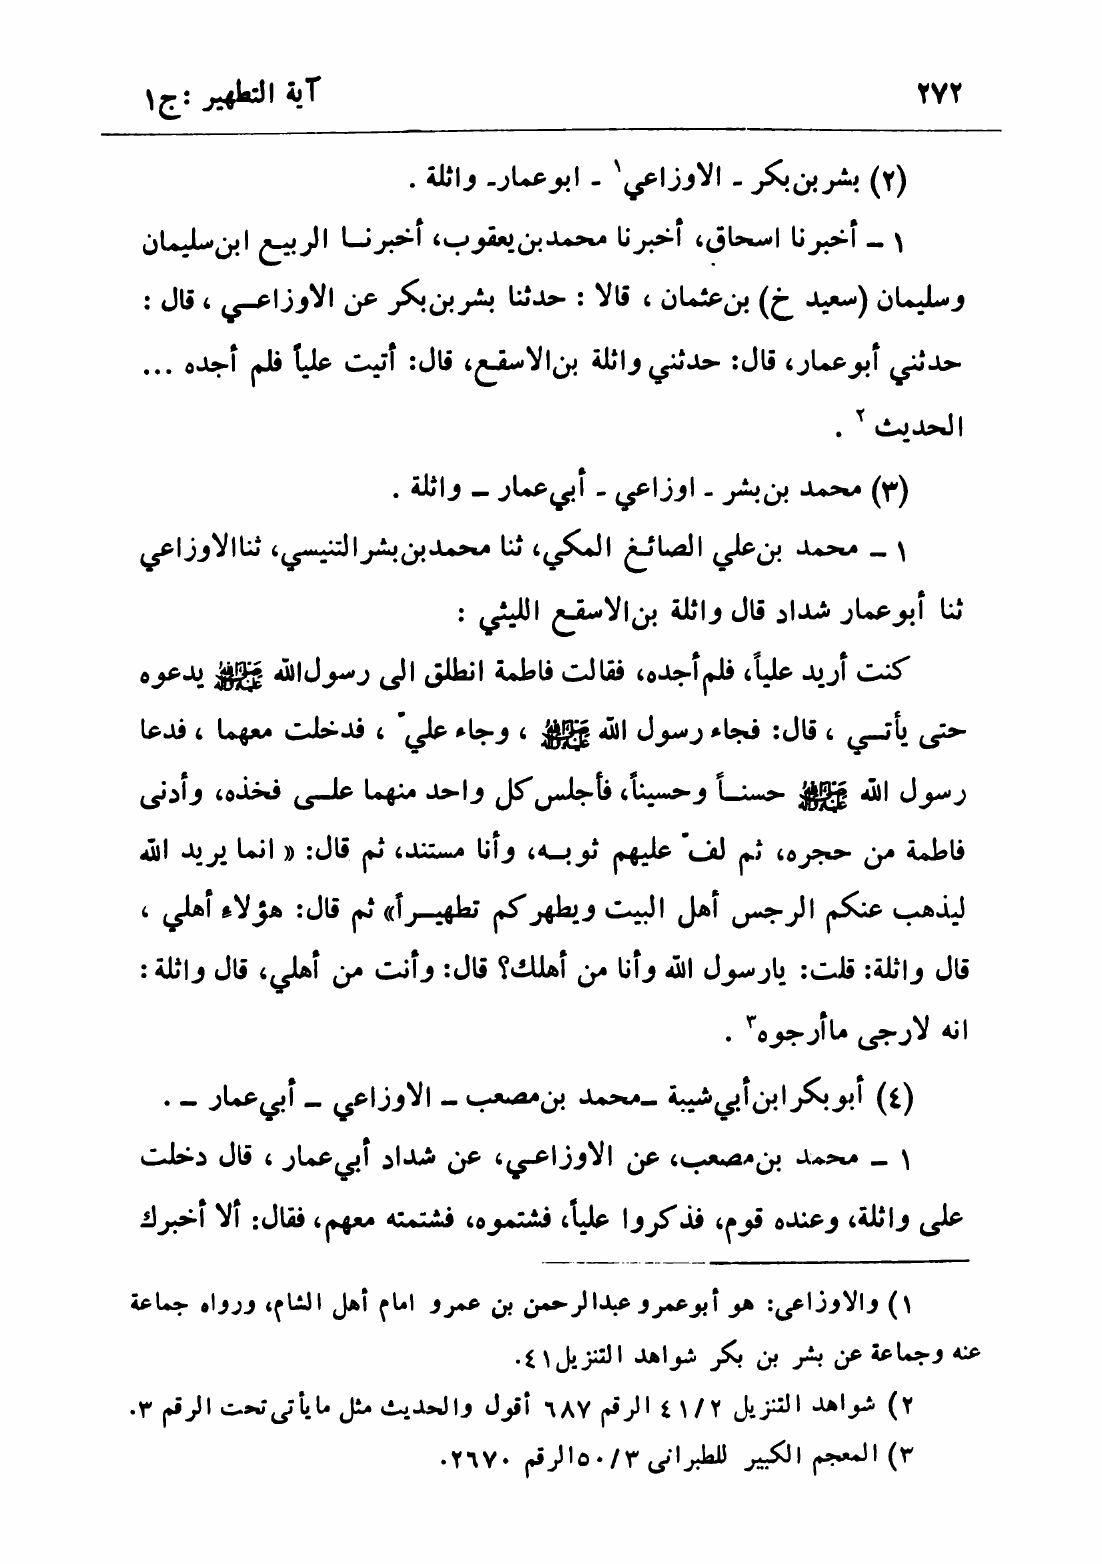 ٢٧٢
آية التطهير :ج١
(٢) بشربن‌بكر ـ الاوزاعي١ ـ ابوعمارـ واثلة .
١ ـ أخبرنا اسحاق، أخبرنا محمدبن‌يعقوب، أخبرنا الربيع ابن‌سليمان
وسليمان (سعيد خ) بن‌عثمان ، قالا : حدثنا بشربن‌بكر عن الاوزاعي ، قال :
حدثني أبوعمار، قال: حدثني واثلة بن‌الاسقع، قال: أتيت علياً فلم أجده ...
الحديث ٢ .
(٣) محمد بن‌بشر ـ اوزاعي ـ أبي‌عمار ـ واثلة .
١ ـ محمد بن‌علي الصائغ المكي، ثنا محمدبن‌بشرالتنيسي، ثناالاوزاعي
ثنا أبوعمار شداد قال واثلة بن‌الاسقع الليثي :
كنت أريد علياً، فلم‌أجده، فقالت فاطمة انطلق الى رسول‌الله ﷺ يدعوه
حتى يأتي ، قال: فجاء رسول الله ﷺ ، وجاء عليّ ، فدخلت معهما ، فدعا
رسول الله ﷺ حسناً وحسيناً، فأجلس كل واحد منهما على فخذه، وأدنى
فاطمة من حجره، ثم لفّ عليهم ثوبه، وأنا مستند، ثم قال: « انما يريد الله
ليذهب عنكم الرجس أهل البيت ويطهركم تطهيراً» ثم قال: هؤلاء أهلي ،
قال واثلة: قلت: يارسول الله وأنا من أهلك؟ قال: وأنت من أهلي، قال واثلة:
انه لارجى ماأرجوه٣ .
(٤) أبوبكرابن‌أبي‌شيبة ـمحمد بن‌مصعب ـ الاوزاعي ـ أبي‌عمار ـ .
١ ـ محمد بن‌مصعب، عن الاوزاعي، عن شداد أبي‌عمار ، قال دخلت
على واثلة، وعنده قوم، فذكروا علياً، فشتموه، فشتمته معهم، فقال: ألا أخبرك
١) والاوزاعى: هو أبوعمرو عبدالرحمن بن عمرو امام أهل الشام، ورواه جماعة
عنه وجماعة عن بشر بن بكر شواهد التنزيل٤١.
٢) شواهد التنزيل ٤١/٢ الرقم ٦٨٧ أقول والحديث مثل مايأتى‌تحت الرقم ٣.
٣) المعجم الكبير للطبرانى ٥٠/٣الرقم ٢٦٧٠.